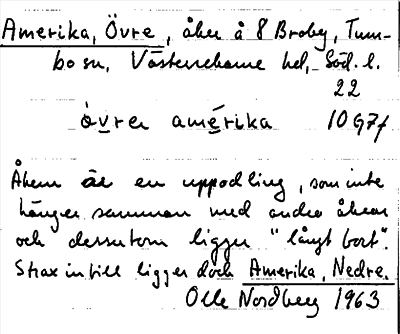 Amerika, Övre, åker å 8 Broby, Tum-
bo sn, Västerrekarne hd, Söd. l.
22
ò̀vrer amérika 10G7f
Åkern är en uppodling, som inte
hänger samman med andra åkrar
och dessutom ligger "långt bort".
Strax intill ligger dock Amerika, Nedre.
Olle Nordberg 1963